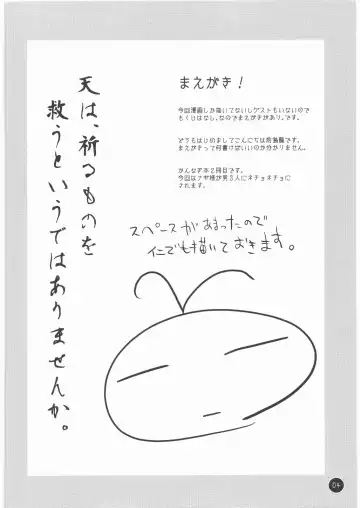 まえがき!
今回漫画しか描いてないしゲストもいないので
もくじはなし。なのでまえがきがあり。です。
どうもはじめましてこんにちは
まえがきって何書けばいいのか分かりません。
かんなぎ本2冊目です。
今回はナギ様が男3人にネチョネチョに
されます。
天は、祈るものを
救うというではありませんか。
スペースがあまったので
仁でも描いておきます。
04